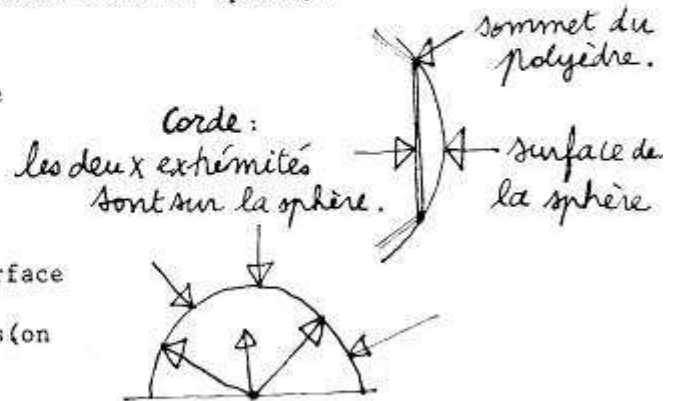 sommet du
polyèdre.
Corde :
les deux extrémités
sont sur la sphère.
surface de
la sphère
rface
s(on